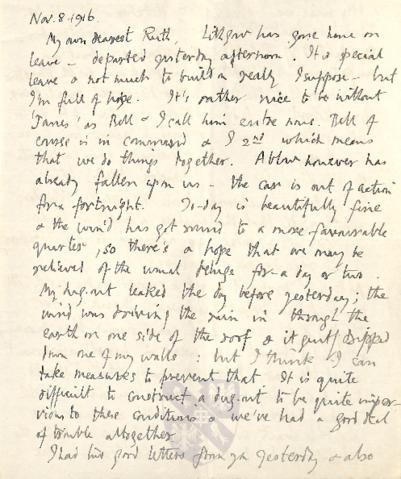 Nov. 8. 1916.
My own dearest Ruth, Lithgow has gone home on
leave – departed yesterday afternoon. It is special
leave & not much to build on really I suppose – but
I'm full of hope. It's rather nice to be without
'James' as Bell & I call him entre nous. Bell of
course is in command & I 2nd which means
that we do things together. A blow however has
already fallen upon us – the car is out of action
for a fortnight. To-day is beautifully fine
& the wind has got round to a more favourable
quarter, so there's a hope that we may be
relieved of the usual deluge for a day or two
My dug-out leaked the day before yesterday; the
wind was driving the rain in through the
earth on one side of the roof & it quite dripped
down one of my walls: but I think I can
take measures to prevent that. It is quite
difficult to construct a dug-out to be quite imper-
vious to these conditions & we've had a good deal
of trouble altogether
I had two good letters from you yesterday & also